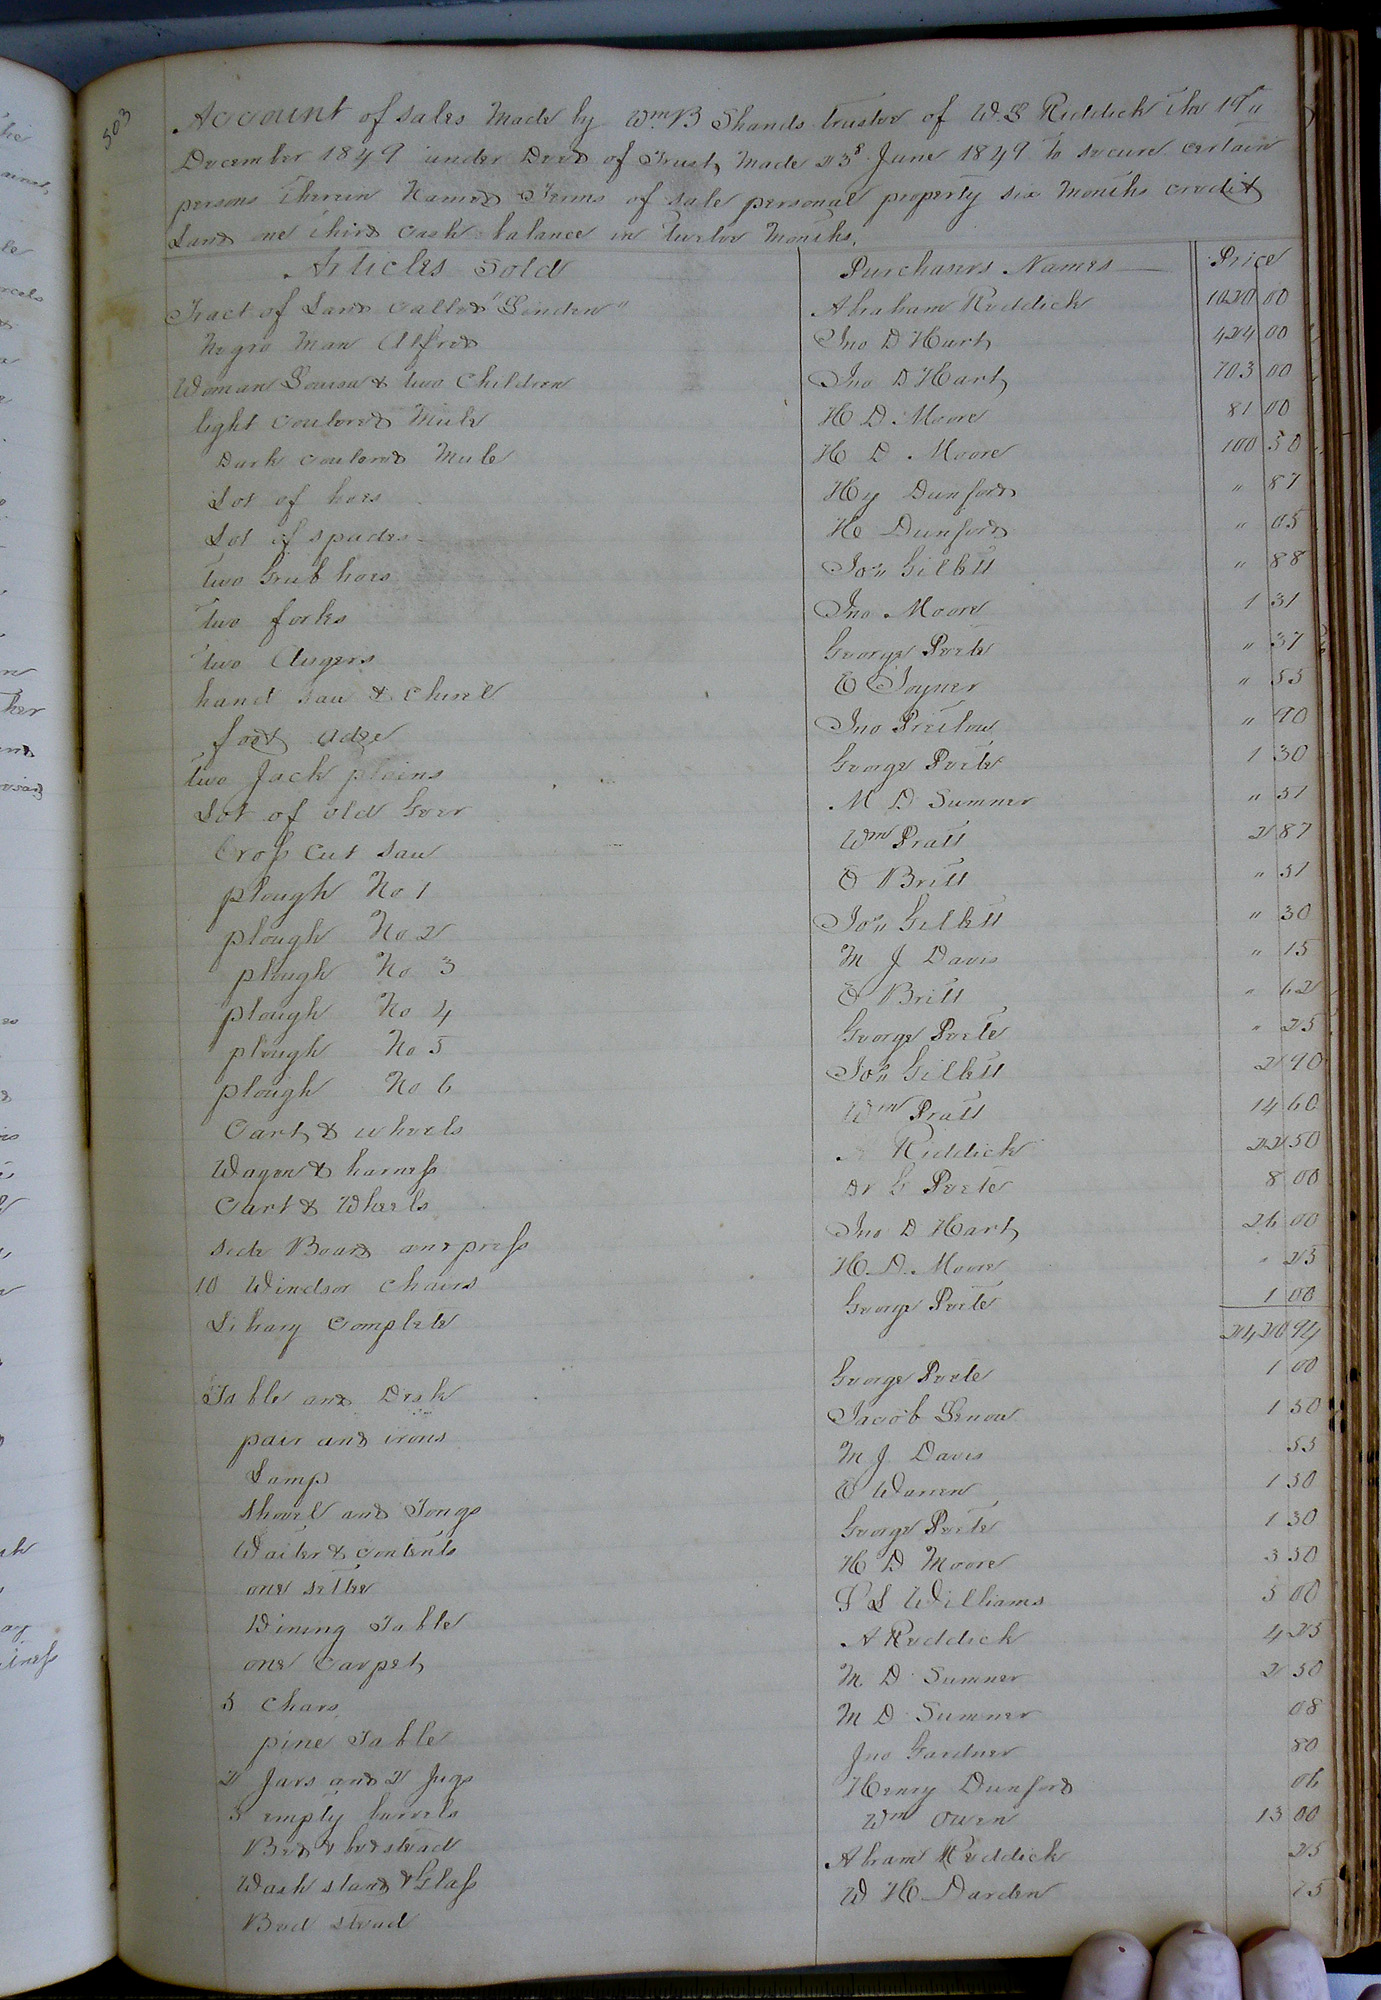 503
Account of sales Made by Wm B Shands trustee of W. S Riddick the 19th
December 1849 under Deed of Trust Made 23d June 1849 to secure certain
persons therein Named Terms of sale personal property six Months credit
Land one third cash balance in twelve Months.
Articles Sold Purchasers Names Price
Tract of Land called "Linden" Abraham Riddick 1020 00
Negro Man Alfred Jno D Hart 424 00
Woman Louisa & two Children Jno D Hart 703 00
light couloured Mule H D Moore 81 00
Dark couloured Mule H D Moore 100 50
Lot of hoes Hy Dunford " 87
Lot of spades H Dunford " 05
two Grub hoes Jos Gilbtt " 88
two forks Jno Moore 1 31
two Augers George Porter " 37
hand saw & chisel E Joyner " 55
foot adze Jno Pretlow " 90
two Jack plains George Porter 1 30
Lot of old Geer M D Sumner " 51
Cross Cut Saw Wm Pratt 2 87
plough No 1 O Britt " 51
plough No 2 Jos Gilbtt " 30
plough No 3 M J Davis " 15
plough No 4 O Britt " 62
plough No 5 George Porter " 25
plough No 6 Jos Gilbtt 2 90
Cart & wheels Wm Pratt 14 60
Wagon & harness A Riddick 22 50
Cart & Wheels Dr G Porter 8 00
side Board and press Jno D Hart 26 00
10 Windsor chairs H. D. Moore " 25
Libary Complete George Porter 1 00
2420 94
Table and Desk George Porter 1 00
pair and irons Jacob Lenow 1 50
Lamp M J Davis 55
shovel and Tongs E Warren 1 50
Waiter & contents George Porter 1 30
one settee H D Moore 3 50
Dining Table L Williams 5 00
one Carpet A Riddick 4 25
5 Chars M. D Sumner 2 50
pine Table M D Sumner 08
2 Jars and 2 Jugs Jno Gardner 80
5 empty barrels Henry Dunford 06
Bed & bedstead Wm Owen 13 00
Wash stand & Glass Abram Riddick 25
Bed stead W H Darden 75